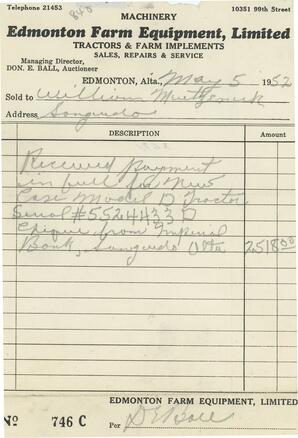 Telephone 21453 840 10351 99th Street
MACHINERY
Edmonton Farm Equipment, Limited
TRACTORS & FARM IMPLEMENTS
SALES, REPAIRS & SERVICE
Managing Director,
DON. E. BALL, Auctioneer
EDMONTON, Alta., May 5 1952
Sold to William
Address Sangudo
DESCRIPTION Amount
Received payment
in full for New
Case Model D Tractor
Serial #5524433 D
Cheque from Imperial
Bank, Sangudo Alta 2518.00
EDMONTON FARM EQUIPMENT, LIMITED
No 746 C Per D E Ball